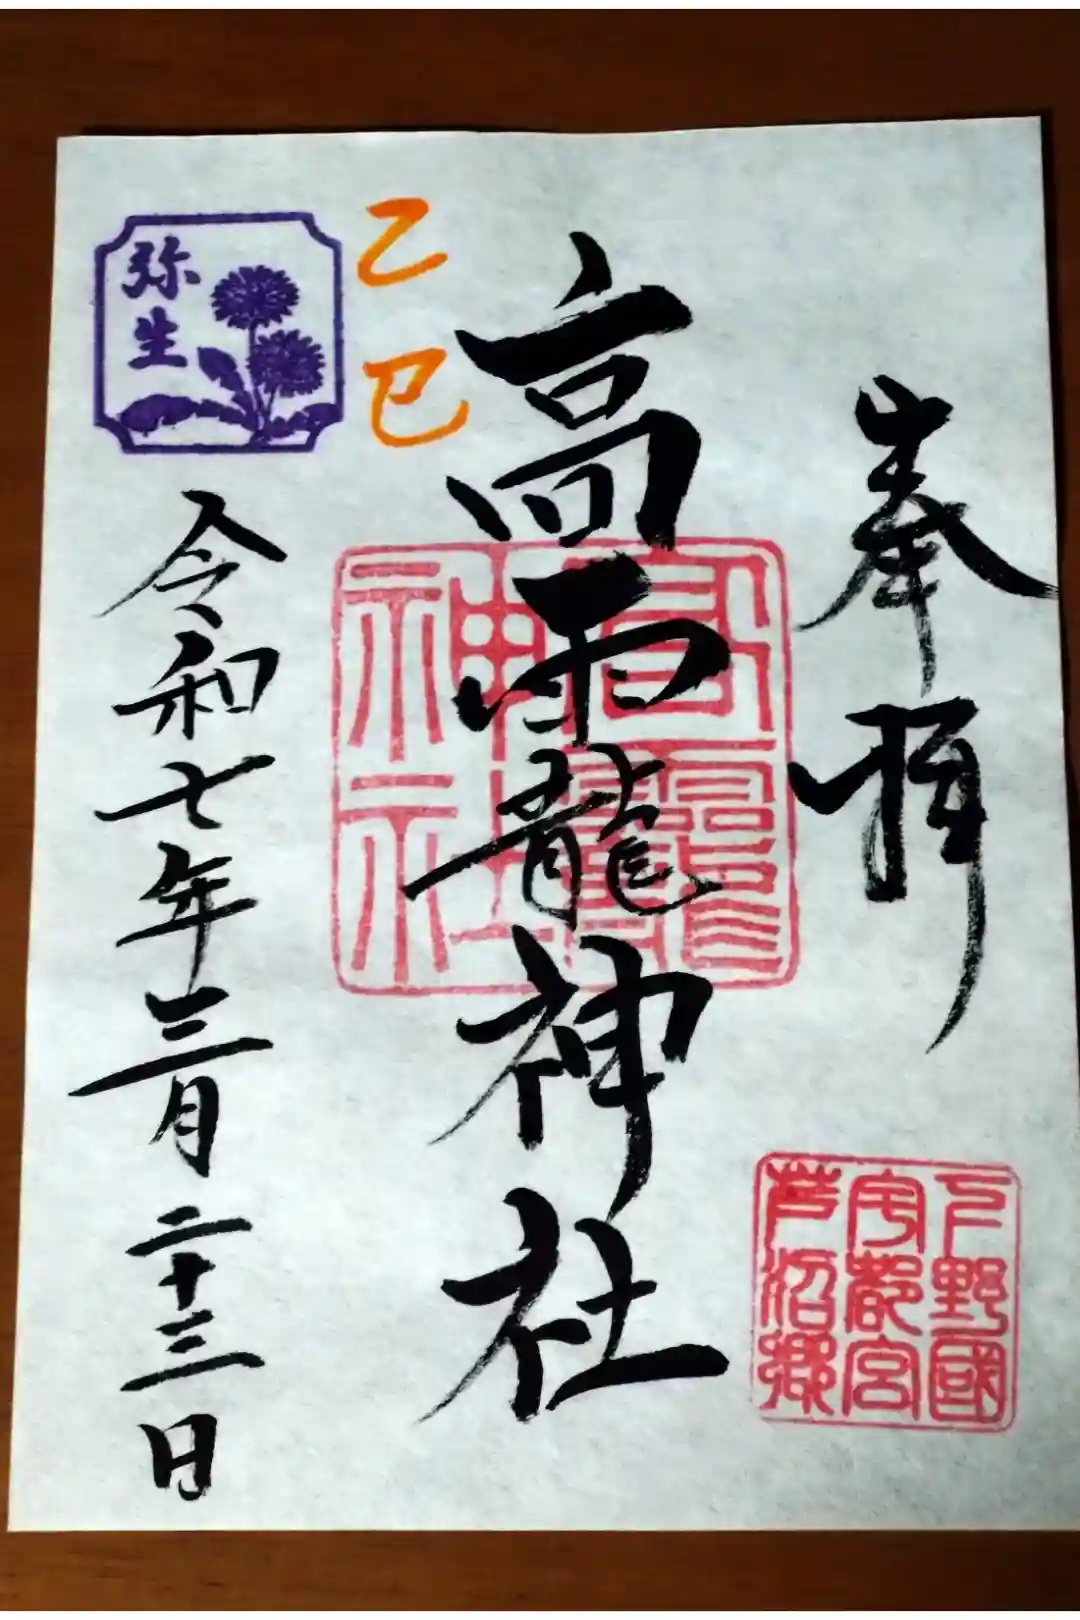 奉拝
下野國
宇都宮
芦沼郷
高靇神社
高龗
神社
乙巳
弥生
令和七年三月二十三日